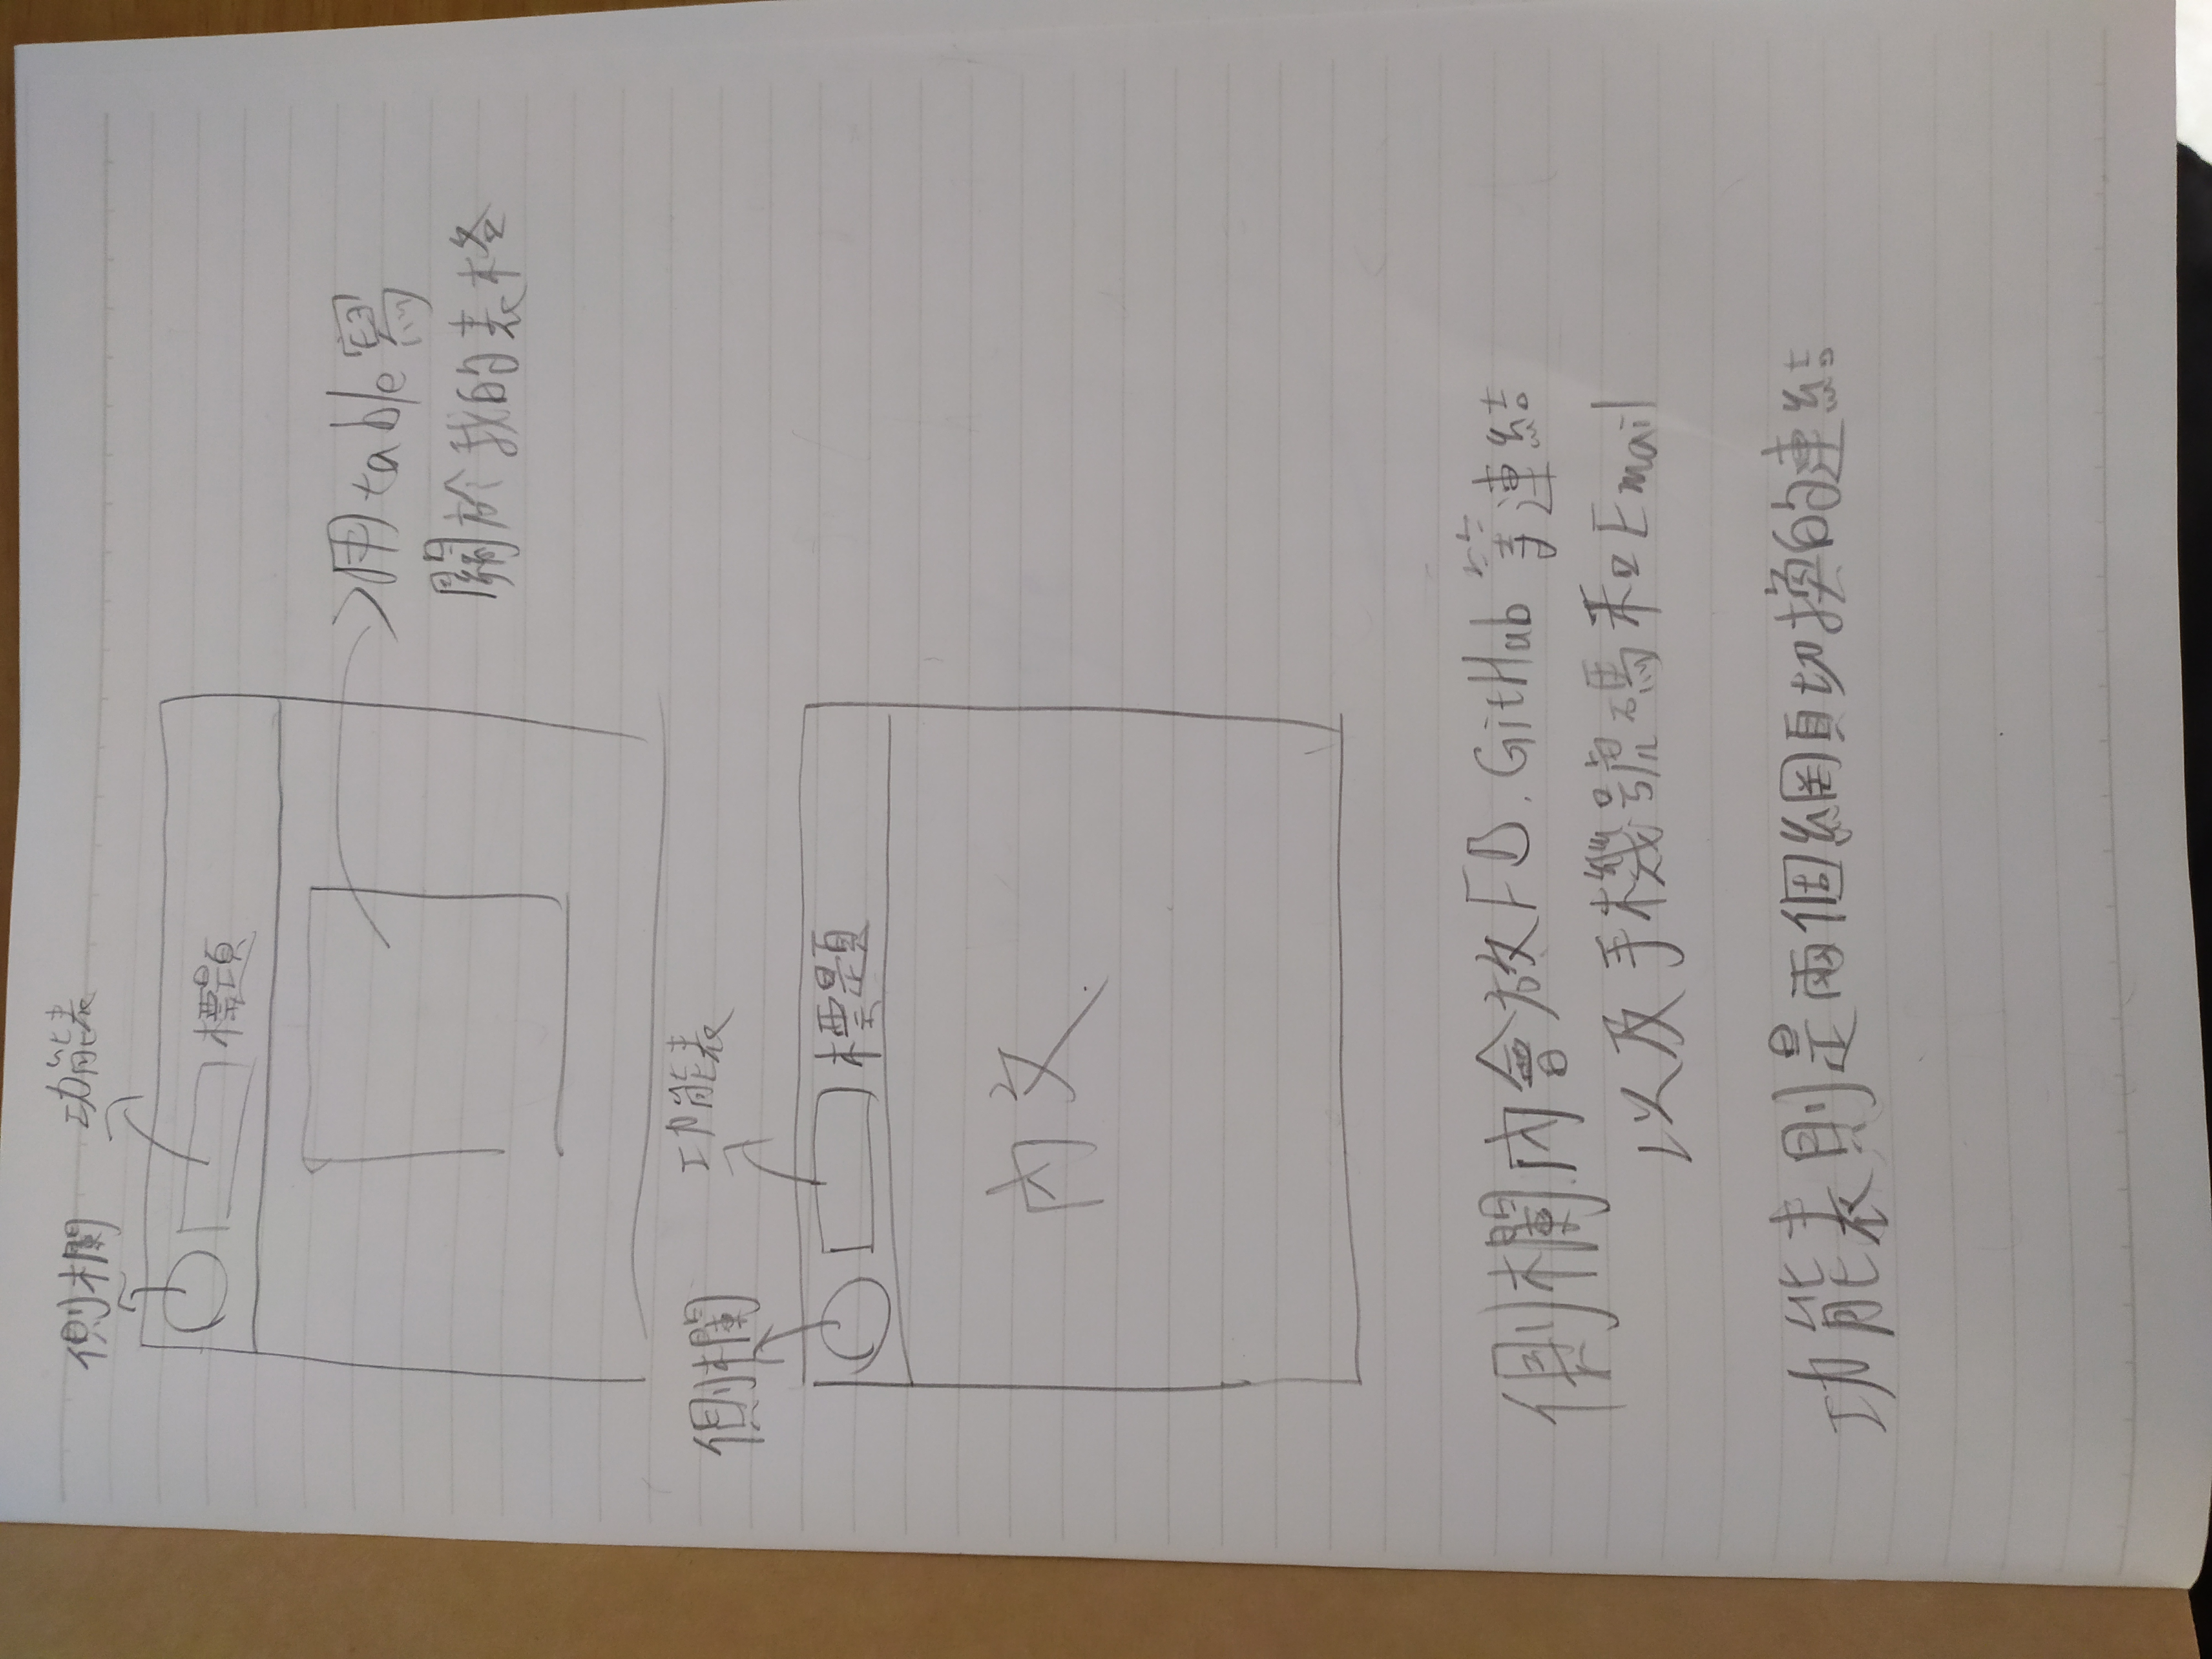 側欄 功能表
標題
用table寫
關於我的表格
側欄 功能表
標題
內文
側欄內會放FB. GitHub等連結
以及手機號碼和Email
功能表則是兩個網頁切換的連結